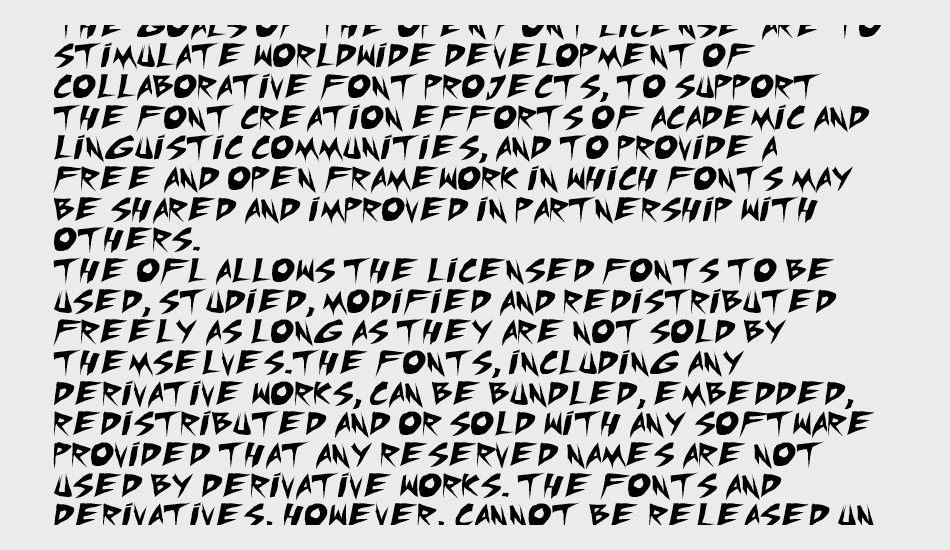 THE GOALS OF THE OPEN FONT LICENSE ARE TO
STIMULATE WORLDWIDE DEVELOPMENT OF
COLLABORATIVE FONT PROJECTS, TO SUPPORT
THE FONT CREATION EFFORTS OF ACADEMIC AND
LINGUISTIC COMMUNITIES, AND TO PROVIDE A
FREE AND OPEN FRAMEWORK IN WHICH FONTS MAY
BE SHARED AND IMPROVED IN PARTNERSHIP WITH
OTHERS.
THE OFL ALLOWS THE LICENSED FONTS TO BE
USED, STUDIED, MODIFIED AND REDISTRIBUTED
FREELY AS LONG AS THEY ARE NOT SOLD BY
THEMSELVES.THE FONTS, INCLUDING ANY
DERIVATIVE WORKS, CAN BE BUNDLED, EMBEDDED,
REDISTRIBUTED AND OR SOLD WITH ANY SOFTWARE
PROVIDED THAT ANY RESERVED NAMES ARE NOT
USED BY DERIVATIVE WORKS. THE FONTS AND
DERIVATIVES, HOWEVER, CANNOT BE RELEASED UN